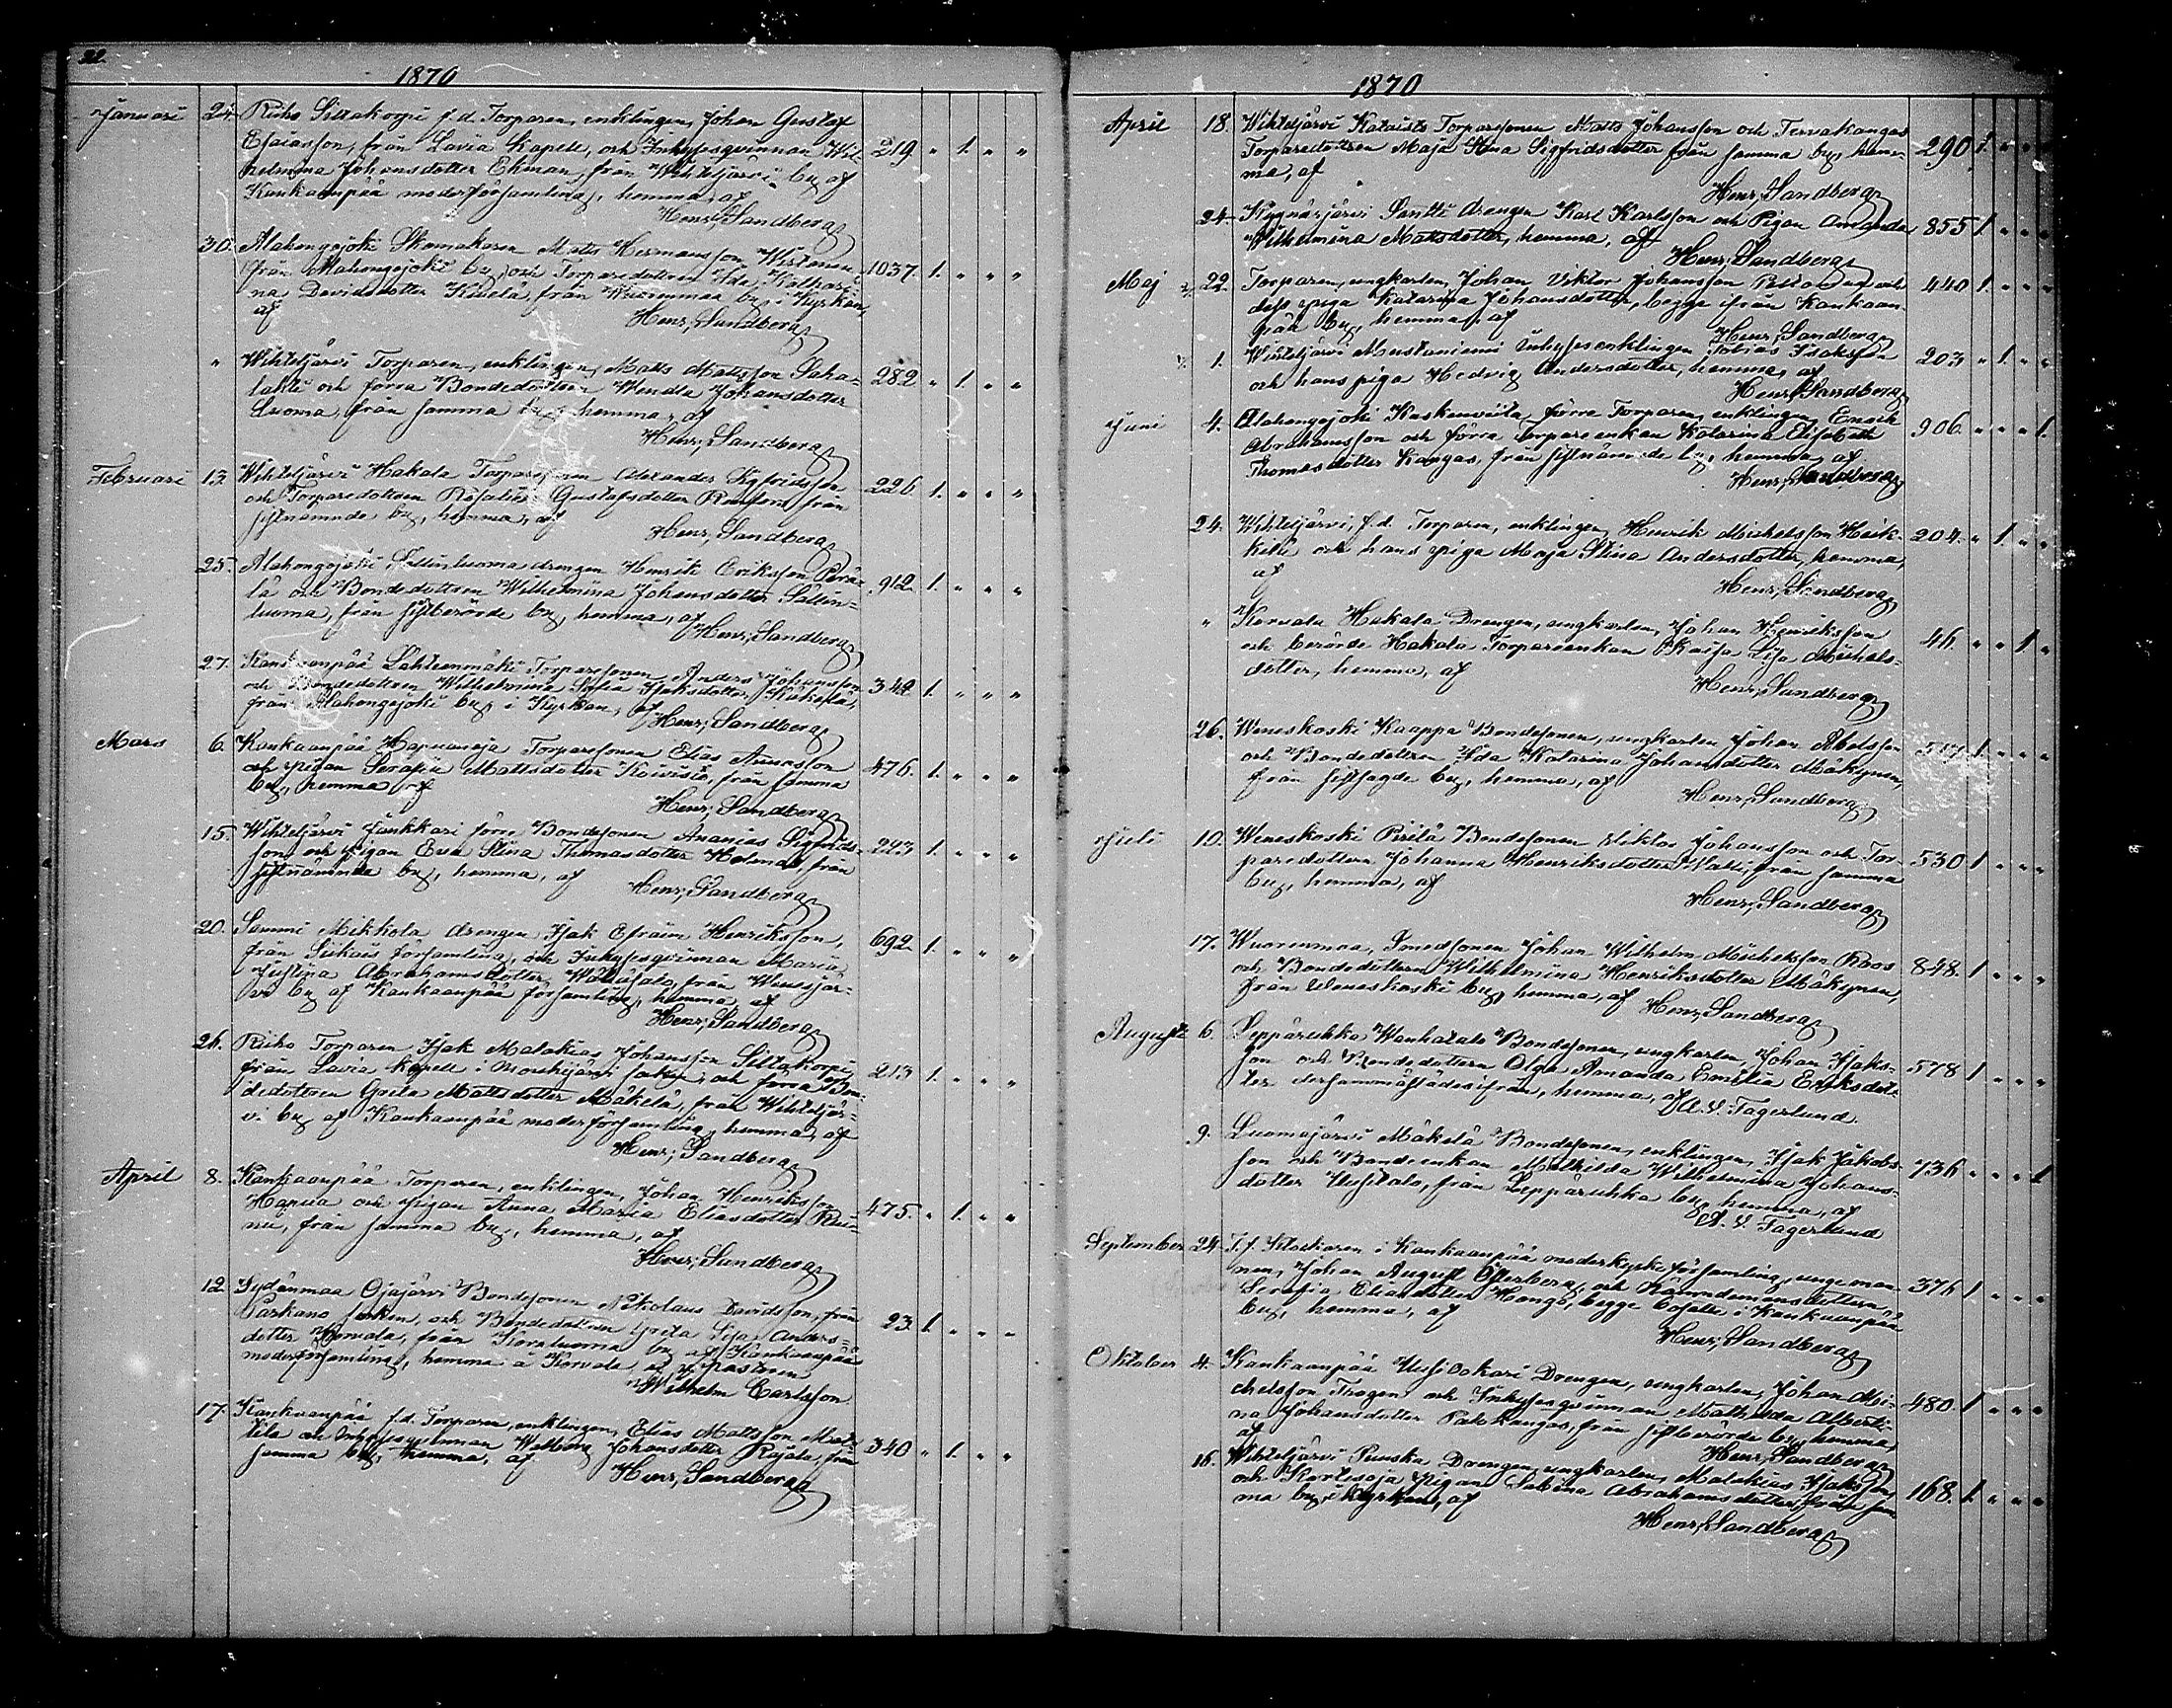 22.
1870
Januari 24. Riiho Siltakorpi f.d. Torparen, enklingen, Johan Gustaf
Esaiasson, från Lavia Kapell, och Inhysesqvinnan Wil- 219 " 1. " "
helmina Johansdotter Ekman, från Wihteljärvi by af
Kankaanpää moderförsamling, hemma, af
Henr, Sandberg
30. Alahongojoki Skomakaren Matts Hermansson Wistonen
från Alahongojoki by, och Torparedottren Ida Kathari- 1037. 1. " " "
na Davidsdotter Kivelä, från Wuorenmaa by i Kyrkan,
af Henr, Sandberg
" Wihteljärvi Torparen, enklingen, Matts Mattsson Saha-
lahti och förra Bondedottren Wendla Johansdotter 282 " 1. " "
Luoma, från samma by, hemma, af
Henr, Sandberg
Februari 13. Wihteljärvi Hakala Torparesonen Alexander Sigfridsson
och Torparedottren Rosalia Gustafsdotter från 226 1. " " "
sistnämnde by, hemma, af
Henr, Sandberg
25. Alahongojoki Sällinluoma drengen Henrik Eriksson Perä-
lä och Bondedottren Wilhelmina Johansdotter Sällin- 912. 1. " " "
luoma, från sistberörde by, hemma, af
Henr, Sandberg
27. Kankaanpää Lähteenmäki Torparesonen Anders Johansson
och Bondedottren Wilhelmina Sofia Isaksdotter 349. 1. " " "
från Alahongojoki by, i Kyrkan, af
Henr, Sandberg
Mars 6. Kankaanpää Hapuanoja Torparesonen Elias Annasson
och pigan Serafia Mattsdotter Koivisto, från samma 476. 1. " " "
by, hemma, af
Henr, Sandberg
15. Wihteljärvi Junkkari förre Bondesonen Ananias Sigfrids-
son och pigan Eva Stina Thomasdotter från 243 1. " " "
sistnämnda by, hemma, af
Henr, Sandberg
20. Sammi Mikkola drengen Isak Efraim Henriksson,
från Siikais församling, och Inhysesqvinnan Maria 692 1. " " "
Justina Abrahamsdotter från Wenesjär-
vi by af Kankaanpää församling, hemma, af
Henr, Sandberg
26. Riiho Torparen Isak Malakias Johansson Siltakorpi,
från Lavia Kapell i Mouhijärvi socken, och förra Bon- 213 1. " " "
dedottren Greta Mattsdotter Mäkelä, från Wihteljär-
vi by af Kankaanpää moderförsamling, hemma, af
Henr, Sandberg
April 8. Kankaanpää Torparen, enklingen, Johan Henriksson
Hapua och pigan Anna Maria Eliasdotter 475. " 1. " "
från samma by, hemma, af
Henr, Sandberg
12. Sydänmaa Ojajärvi Bondesonen Nikolaus Davidsson, från
Parkano socken, och Bondedottren Greta Lisa Anders- 23. 1. " " "
dotter Korvala, från Korvaluoma by af Kankaanpää
moderförsamling, hemma å Korvala af pastorn
Wilhelm Carlsson
17. Kankaanpää f.d. Torparen, enklingen, Elias Mattsson
och Inhysesqvinnan Walborg Johansdotter Rajala, från 340 " 1. " "
samma by, hemma, af
Henr, Sandberg
1870
April 18. Wihteljärvi Torparesonen Matts Johansson och Tervakangas
Torparedottren Maja Stina Sigfridsdotter från samma by, hem- 290 1. " " "
ma, af
Henr, Sandberg
24. Kyynärjärvi Santti drengen Karl Karlsson och Pigan Amanda 855 1 " " "
Wilhelmina Mattsdotter, hemma, af
Henr, Sandberg
Maj 22. Torparen, ungkarlen, Johan Viktor Johansson och 440 1. " " "
dess piga Katarina Johansdotter, begge från Kankaan-
pää by, hemma, af
Henr, Sandberg
1. Wihteljärvi Mustaniemi Inhysesenklingen Tobias Isaksson 203 " 1. " "
och hans piga Hedvig Andersdotter, hemma, af
Henr, Sandberg
Juni 4. Alahongojoki Kaskenviita förre Torparen, enklingen, Enoch
Abrahamsson och förra Torpareenkan Katarina Elisabeth 906. " " " 1.
Thomasdotter Kangas, från sistnämnde by, hemma, af
Henr, Sandberg
24. Wihteljärvi, f.d. Torparen, enklingen, Henrik Michelsson Heik-
kilä och hans piga Maja Stina Andersdotter, hemma, 204. " 1. " "
af
Henr, Sandberg
" Korvala Hakala Drengen, ungkarlen, Johan Henriksson
och berörde Hakala Torpareenkan Kaisa Lisa Michels- 46. " " 1 "
dotter, hemma, af
Henr, Sandberg
26. Weneskoski Kaappa Bondesonen, ungkarlen, Johan Abelsson
och Bondedottren Ida Katarina Johansdotter Mäkynen, 1 " " "
från sistsagde by, hemma, af
Henr, Sandberg
Juli 10. Weneskoski Perilä Bondesonen Viktor Johansson och Tor-
paredottren Johanna Henriksdotter från samma 530 1 " " "
by, hemma, af
Henr, Sandberg
17. Wuorenmaa, Smedsonen Johan Wilhelm Michelsson Roos
och Bondedottren Wilhelmina Henriksdotter Mäkynen, 848. 1 " " "
från Weneskoski by, hemma, af
Henr, Sandberg
Augusti 6. Leppäruhka Wanhatalo Bondesonen, ungkarlen, Johan Isaks-
son och Bondedottren Olga Amanda Emilia Eriksdot- 578 1 " " "
ter dersammastädesifrån, hemma, af
A. V. Fagerlund.
9. Luomajärvi Mäkelä Bondesonen, enklingen, Isak Jakobs-
son och Bondeenkan Mathilda Wilhelmina Johans- 736 " " " 1
dotter Uusitalo, från Leppäruhka by, hemma, af
A. V. Fagerlund
September 24. T. f. Klockaren i Kankaanpää moderkyrkoförsamling, unge man-
nen, Johan August Österberg, och Nämndemansdottren 376 1 " " "
Serafia Eliasdotter Hongo, begge bosatte i Kankaanpää
by, hemma, af
Henr, Sandberg
Oktober 4. Kankaanpää Uusi Drengen, ungkarlen, Johan Mi-
chelsson och Inhysesqvinnan Mathilda Alberti- 480 1 " " "
na Johansdotter från sistberörde by, hemma,
af Henr, Sandberg
16. Wihteljärvi Punska Drengen, ungkarlen, Malakias Isaksson,
och pigan Sabina Abrahamsdotter, från sam- 168. 1. " " "
ma by, i Kyrkan, af
Henr, Sandberg